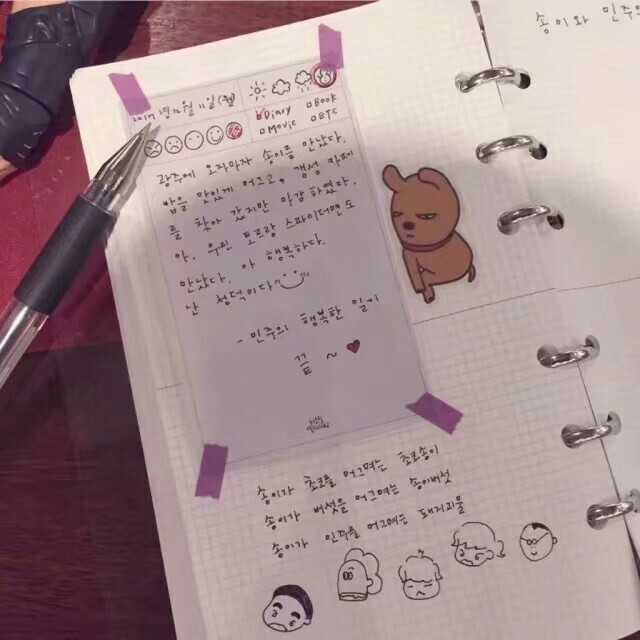 송이와 민주의
2017년 12월 11일 (월)
Diary Book
Movie ETC
광주에 오자마자 송이를 만났다.
밥을 맛있게 먹고 감성 카페
를 찾아 갔지만 마감 하였다.
아, 우린 토르랑 스파이더맨도
만났다. 아 행복하다.
난 성덕이다"
- 민주의 행복한 일기
끝 ~ ♥
송이가 초코를 먹으면 초코송이
송이가 버섯을 먹으면 송이버섯
송이가 민주를 먹으면 돼지괴물